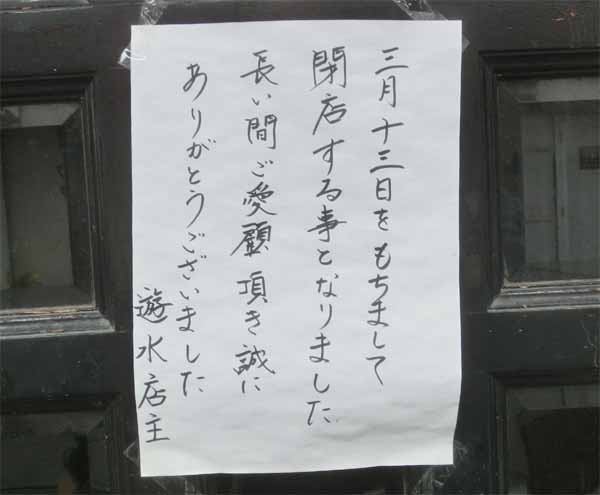 三月十三日をもちまして
閉店する事となりました
長い間ご愛顧頂き誠に
ありがとうございました
遊水店主